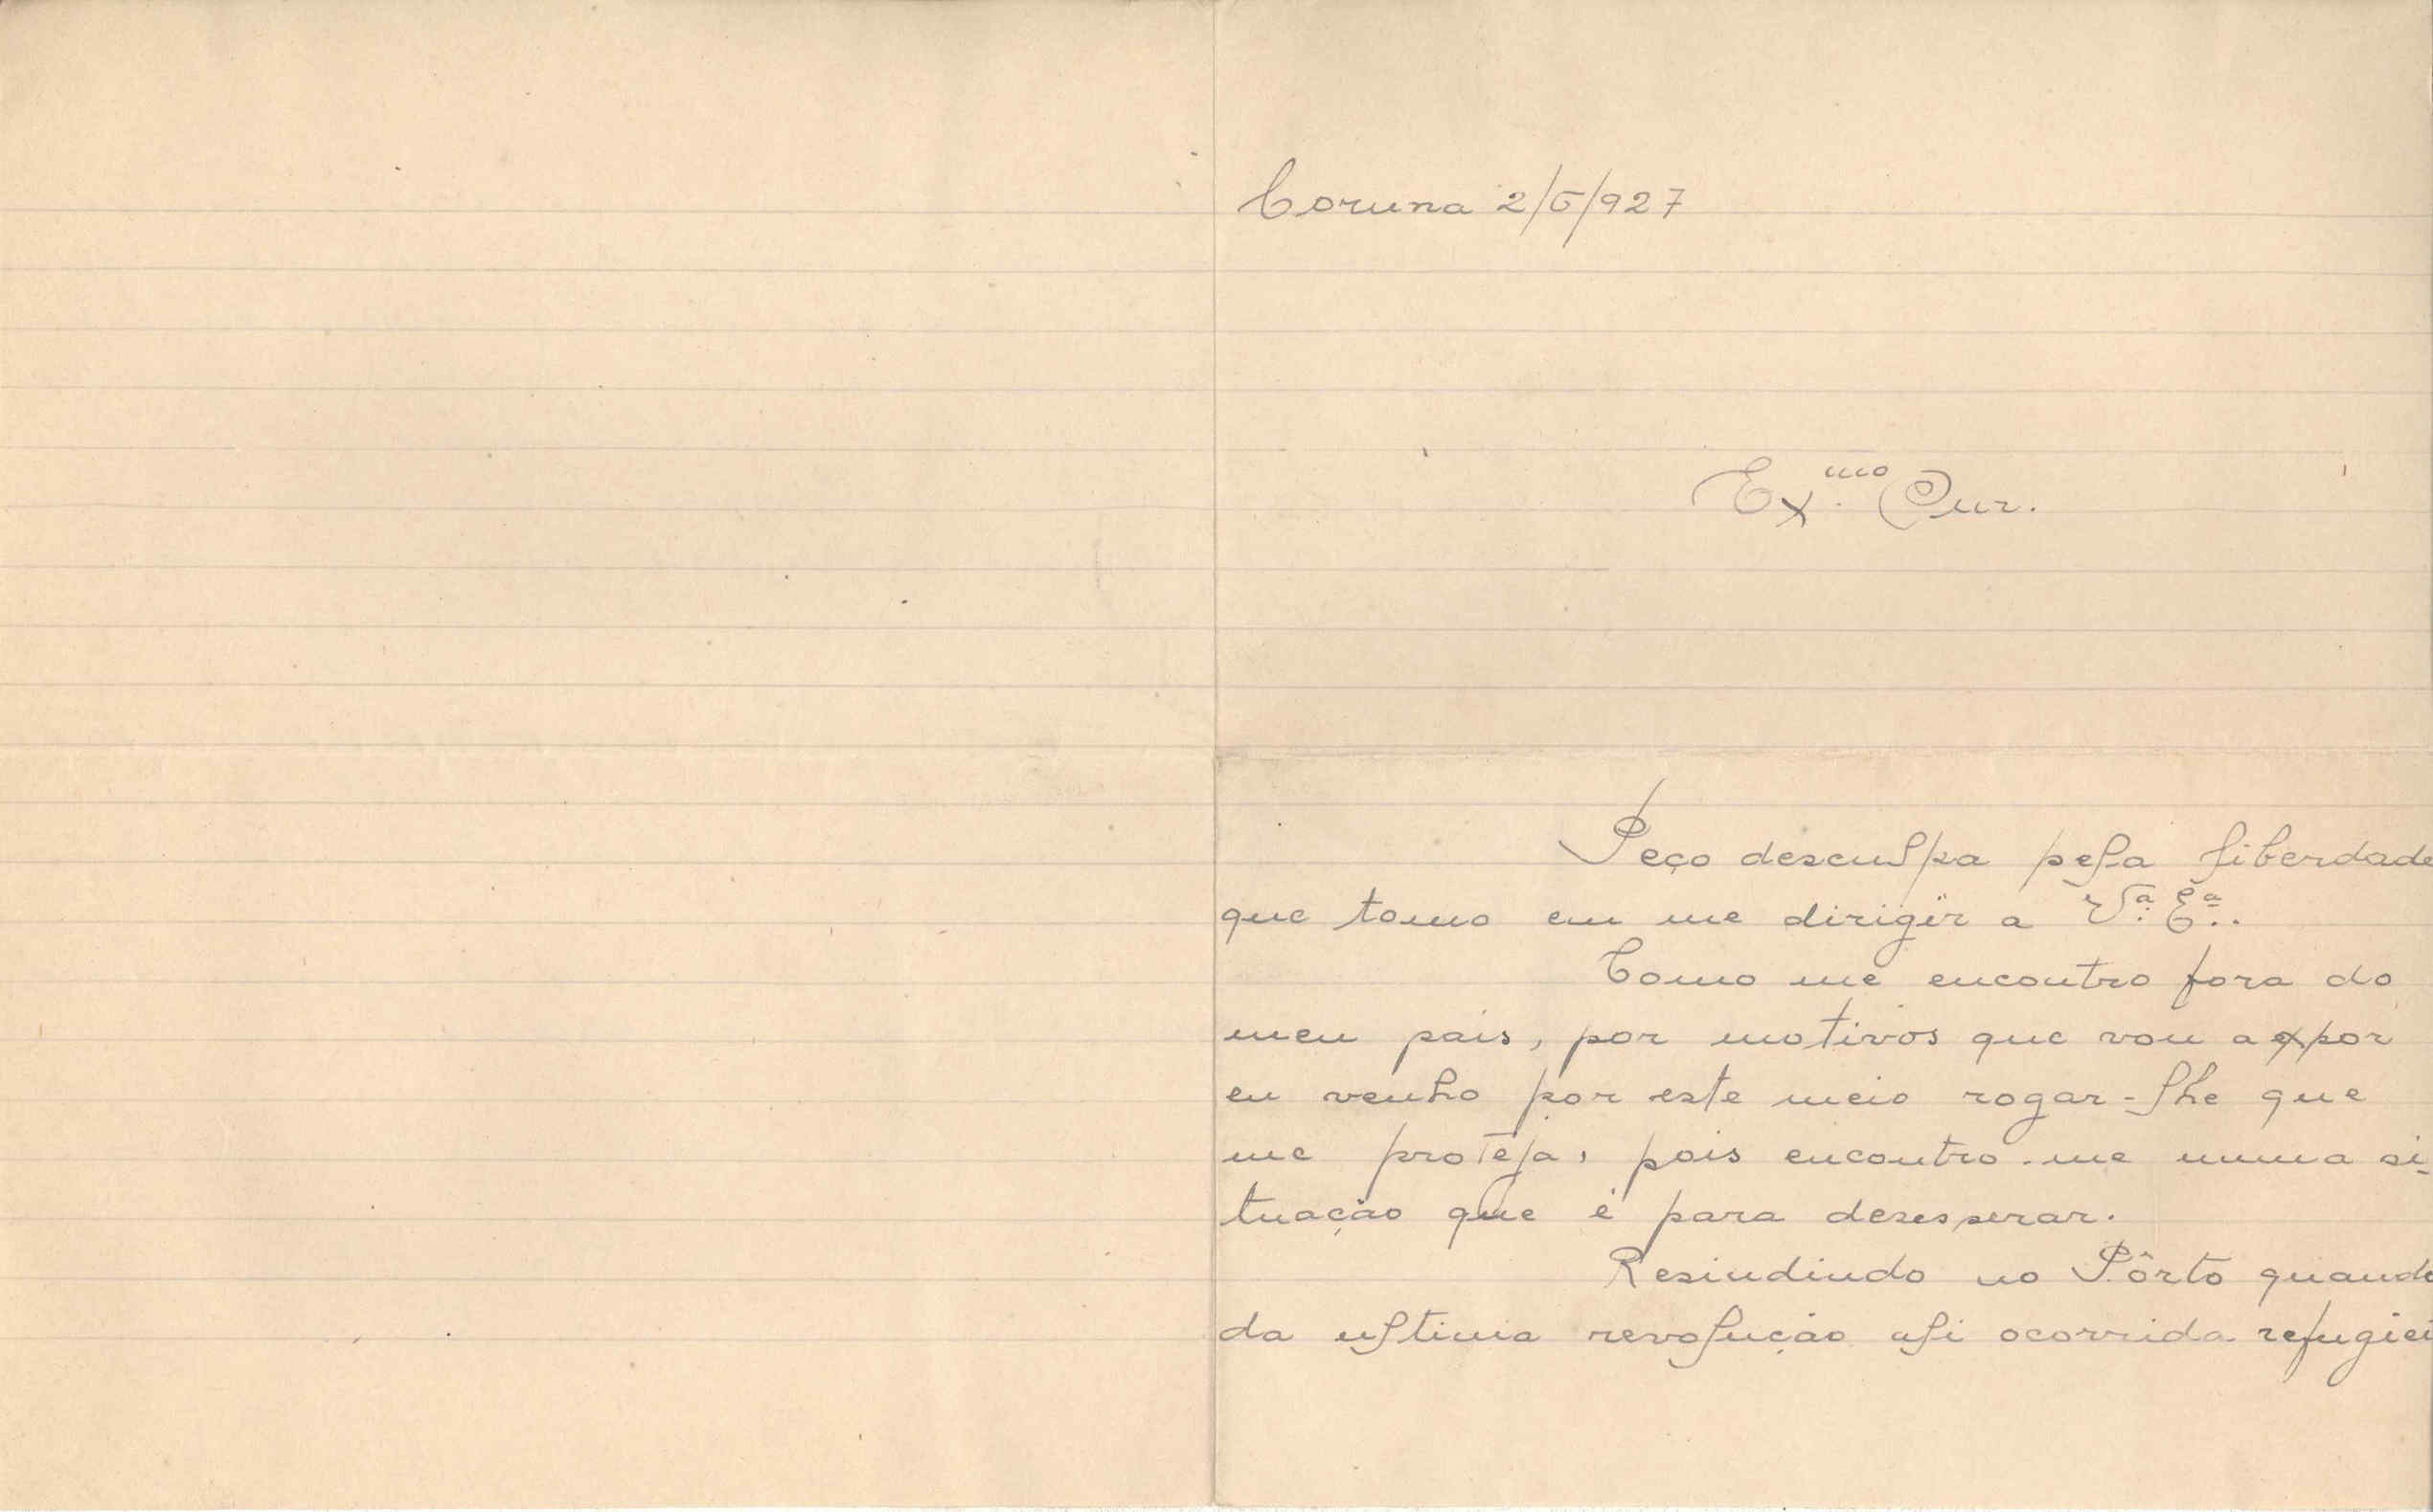 Coruna 2/5/927
Ex.mo Snr.
Peço desculpa pela liberdade
que tomo em me dirigir a V.ª E.ª.
Como me encontro fora do
meu pais, por motivos que vou a expor
eu venho por este meio rogar-lhe que
me proteja, pois encontro-me numa si-
tuação que é para desesperar.
Resindindo no Pôrto quando
da ultima revolução ali ocorrida refugiei